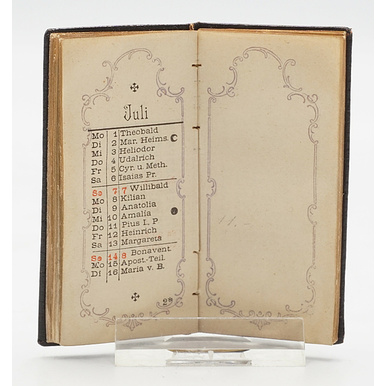 Juli
Mo 1 Theobald
Di 2 Mar. Heims.
Mi 3 Heliodor
Do 4 Udalrich
Fr 5 Cyr. u. Meth.
Sa 6 Isaias Pr.
So 7 7 Willibald
Mo 8 Kilian
Di 9 Anatolia
Mi 10 Amalia
Do 11 Pius I. P
Fr 12 Heinrich
Sa 13 Margareta
So 14 8 Bonavent.
Mo 15 Apost.-Teil.
Di 16 Maria v. B.
28